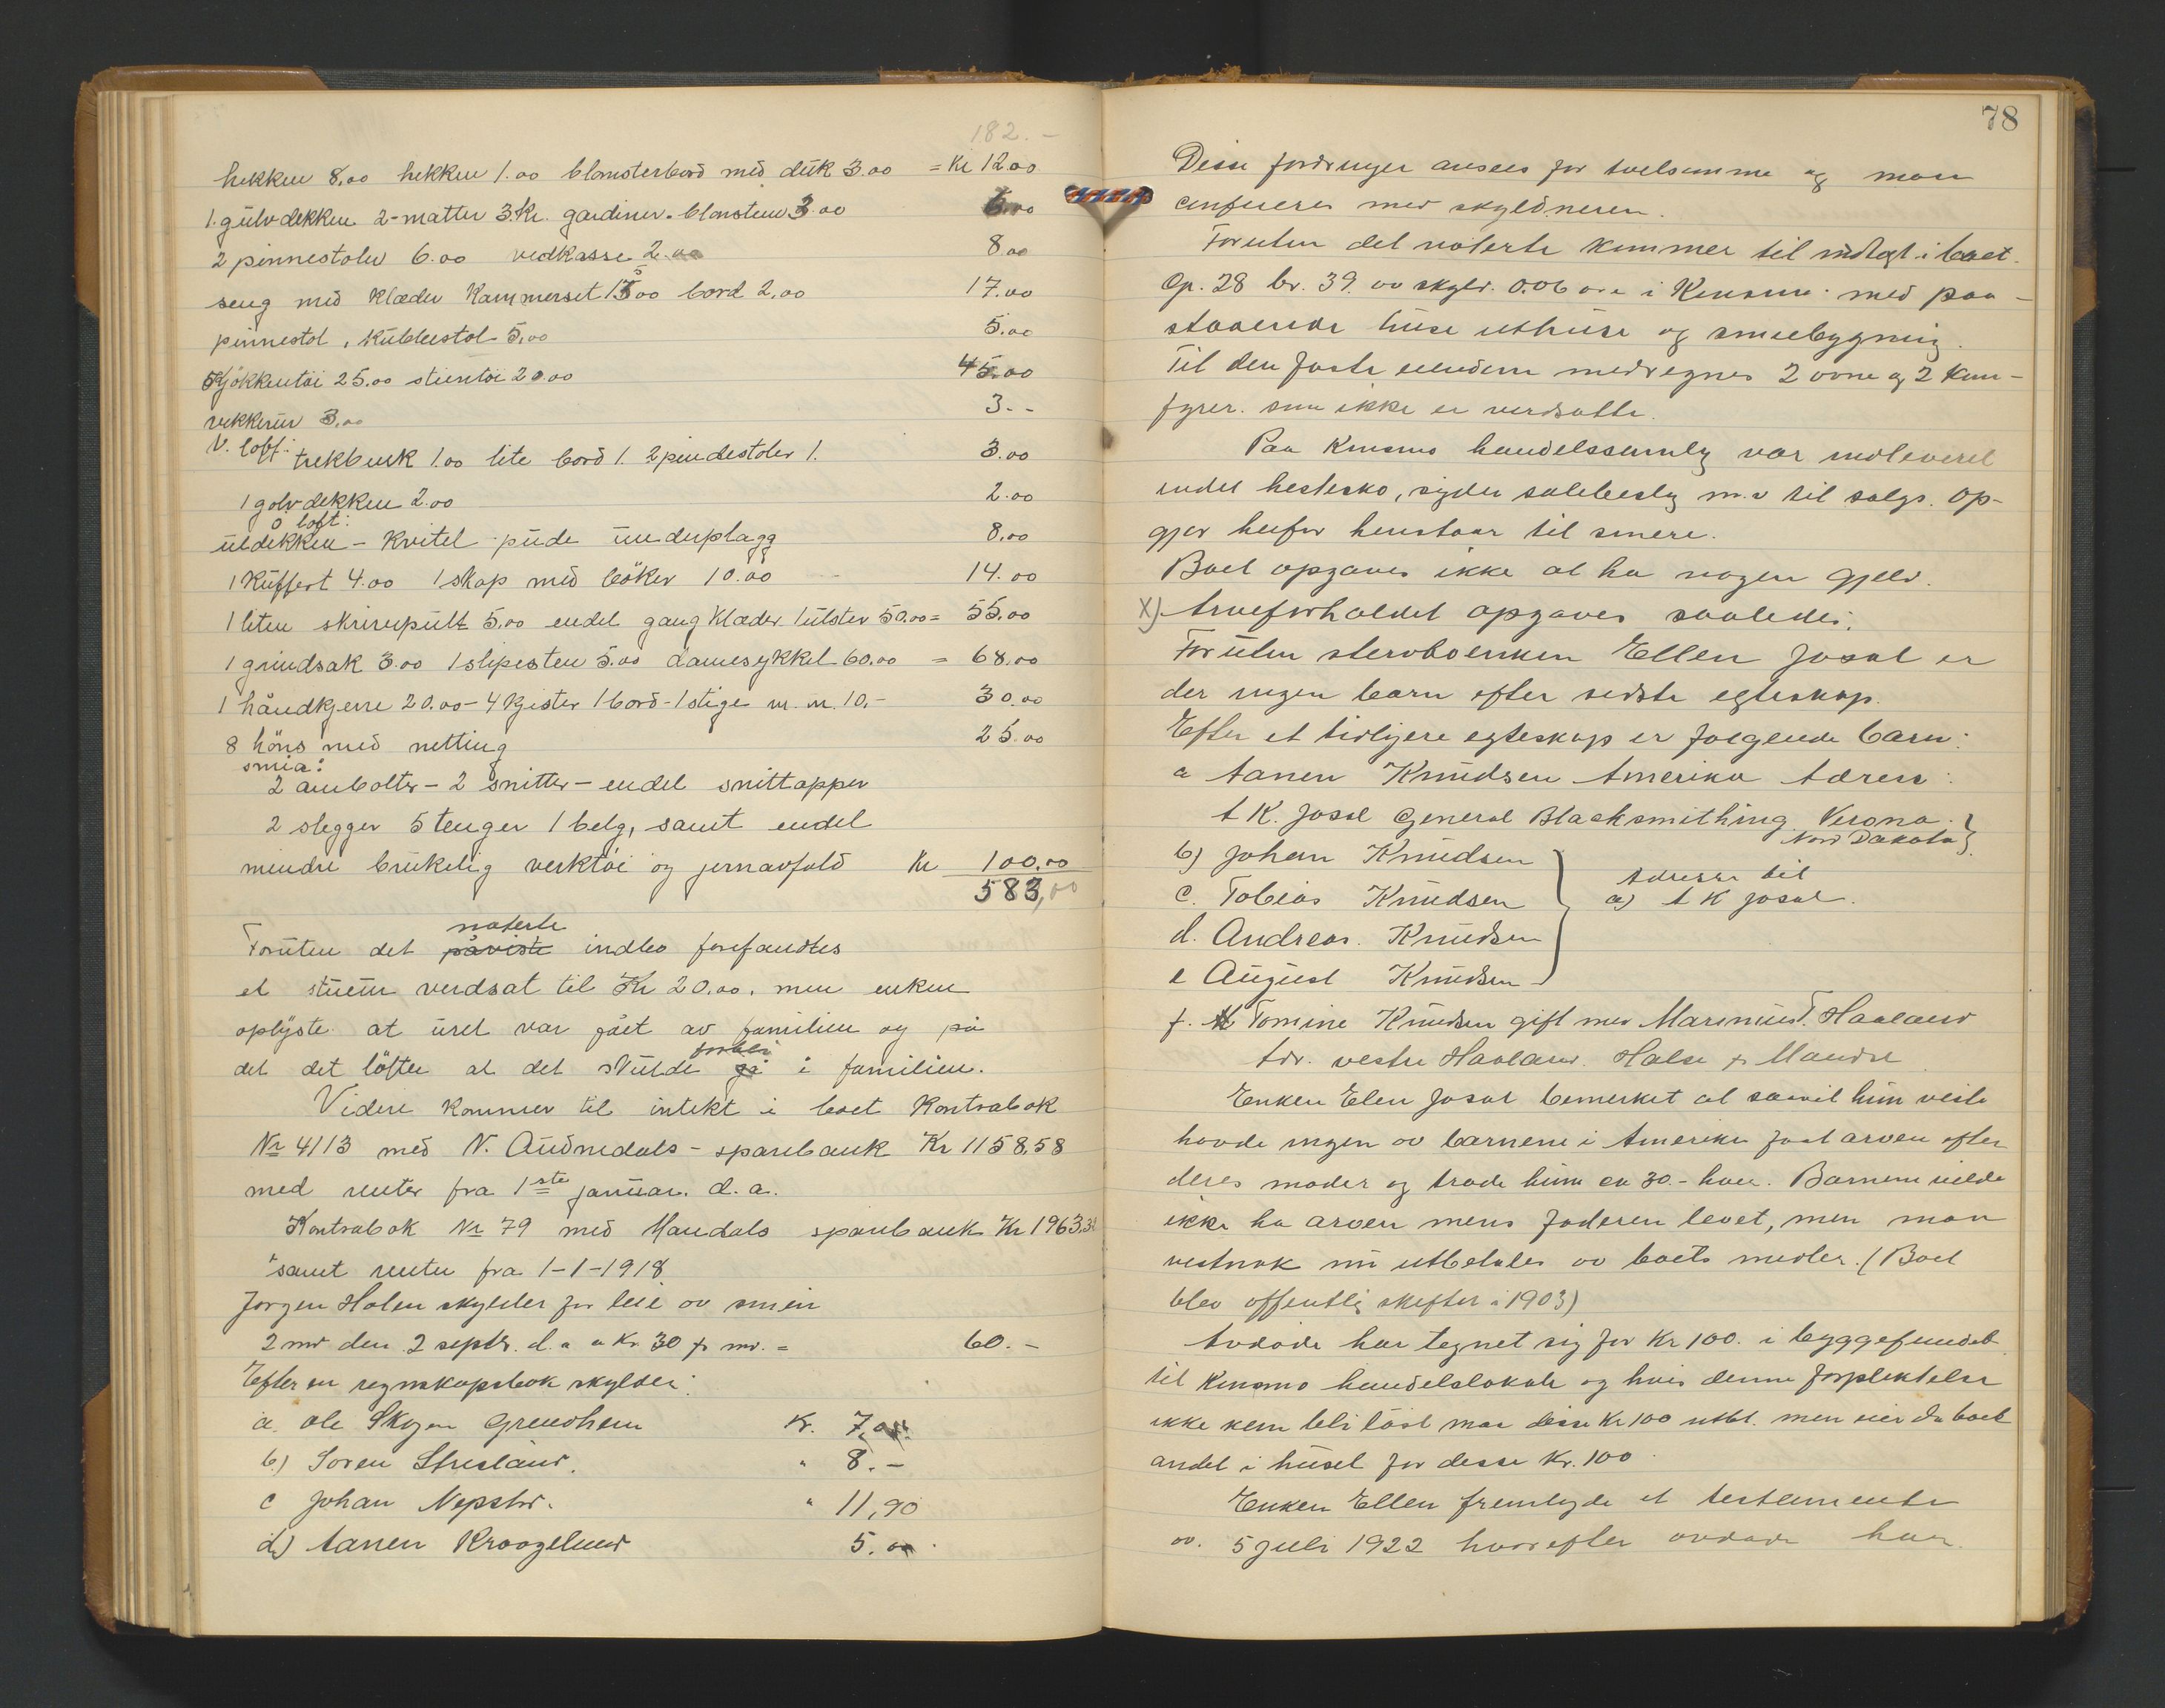 182.-
hekken 8,00 hekken 1.00 blomsterbord med duk 3.00 = Kr 12.00
1. gulvdekken 2-matter 3 Kr. gardiner. blomsteu 3.00 6.00
2 pinnestoler 6.00 vedkasse 2.00 8.00
seng med klæder Kammerset 15.00 bord 2.00 17.00
pinnestol, Kubbestol 5,00 5.00
Kjökkentöi 25.00 stientöi 20.00 45.00
vekkerur 3,00 3.-
V. loft: trekbenk 1.00 lite bord 1. 2 pindestoler 1. 3.00
1 golvdekken 2.00 2.00
ö loft:
uldekken - Kvitel pude underplagg 8,00
1 Kuffert 4.00 1 skap med böker 10.00 14.00
1 liten skrivepult 5,00 endel gang klæder. 1 ulster 50.00 = 55,00
1 grindsak 3.00 1 slipesten 5.00 damesykkel 60.00 = 68,00
1 håndkjerre 20.00 - 4 kjister 1 bord - 1 stige m. m. 10,- 30.00
8 höns med netting 25.00
smia:
2 ambolter - 2 snitter - endel snittapper
2 slegger 5 tenger 1 belg, samt endel
mindre brukelig verktöi og jernavfald Kr 100.00
583,00
noterte
Foruten det påviste indbo forefandtes
et stueur verdsat til Kr 20.00. men enken
oplyste at uret var gået av familien og på
forbli
det det löfte at det skulde gå i familien.
Videre kommer til intekt i boet Kontrabok
Nr 4113 med N. Audnedals - sparebank Kr 1158,58
med renter fra 1ste januar. d. a.
Kontrabok Nr 79 med Mandals sparebank Kr 1963.3
samt renter fra 1-1-1918
Jorgen Holen skylder for leie av smien
2 md den 2 septr. d. a a Kr. 30 pr md. = 60.-
Efter en regnskapsbok skylder:
a. Ole Skogen Grendhem Kr. 7,00
b.) Soren Strisland. " 8.-
c Johan Nepstd. " 11,90
d) Aanen Kroogelund 5.00
78
Disse fordringer ansees for tvelsomme og man
confererer med skyldneren.
Foruten det noterte kommer til indtegt i boet.
Gp. 28 br. 39. av skyld. 0.06 øre i Kinsmo. med paa-
staaende huse uthuse og smiebygning.
Til den faste eiendom medregnes 2 ovne og 2 kom-
fyrer. som ikke er verdsatte.
Paa Kinsmo handelssamlg var indleveret
endel hestesko, sigder salebeslg m.v til salgs. Op-
gjør herfor henstaar til senere.
Boet opgaves ikke at ha nogen gjeld.
x) Arveforholdet opgaves saaledes:
Foruten stervboenken Ellen Josal er
der ingen barn efter sidste egteskap.
Efter et tidligere egteskap er følgende barn:
a Aanen Knudsen Amerika Adress:
A K. Josal General Blacksmithing Verona.
Nord Dakota
b) Johan Knudsen
c. Tobias Knudsen
adresse til
a) A K Josal.
d. Andreas. Knudsen
e August Knudsen
f. Tomine Knudsen gift med Marinius T. Haaland
Adr. vestre Haaland. Halse pr Mandal
Enken Elen Josal bemerket at saavit hun viste
havde ingen av barnene i Amerika faat arven efter
deres moder og trode hun ca 30.- hver. Barnene vilde
ikke ha arven mens faderen levet, men man
vestnok nu utbetales av boets midler. (Boet
blev offentlig skiftet i 1903)
Avdøde har tegnet sig for Kr 100. i byggefondet
til Kinsmo handelslokale og hvis denne forpliktelse
ikke kan bli løst maa disse Kr 100 utbet. men eier da boet
andel i huset for disse Kr. 100.
Enken Ellen fremlagde et testamente
av. 5 juli 1922 hvorefter avdøde har